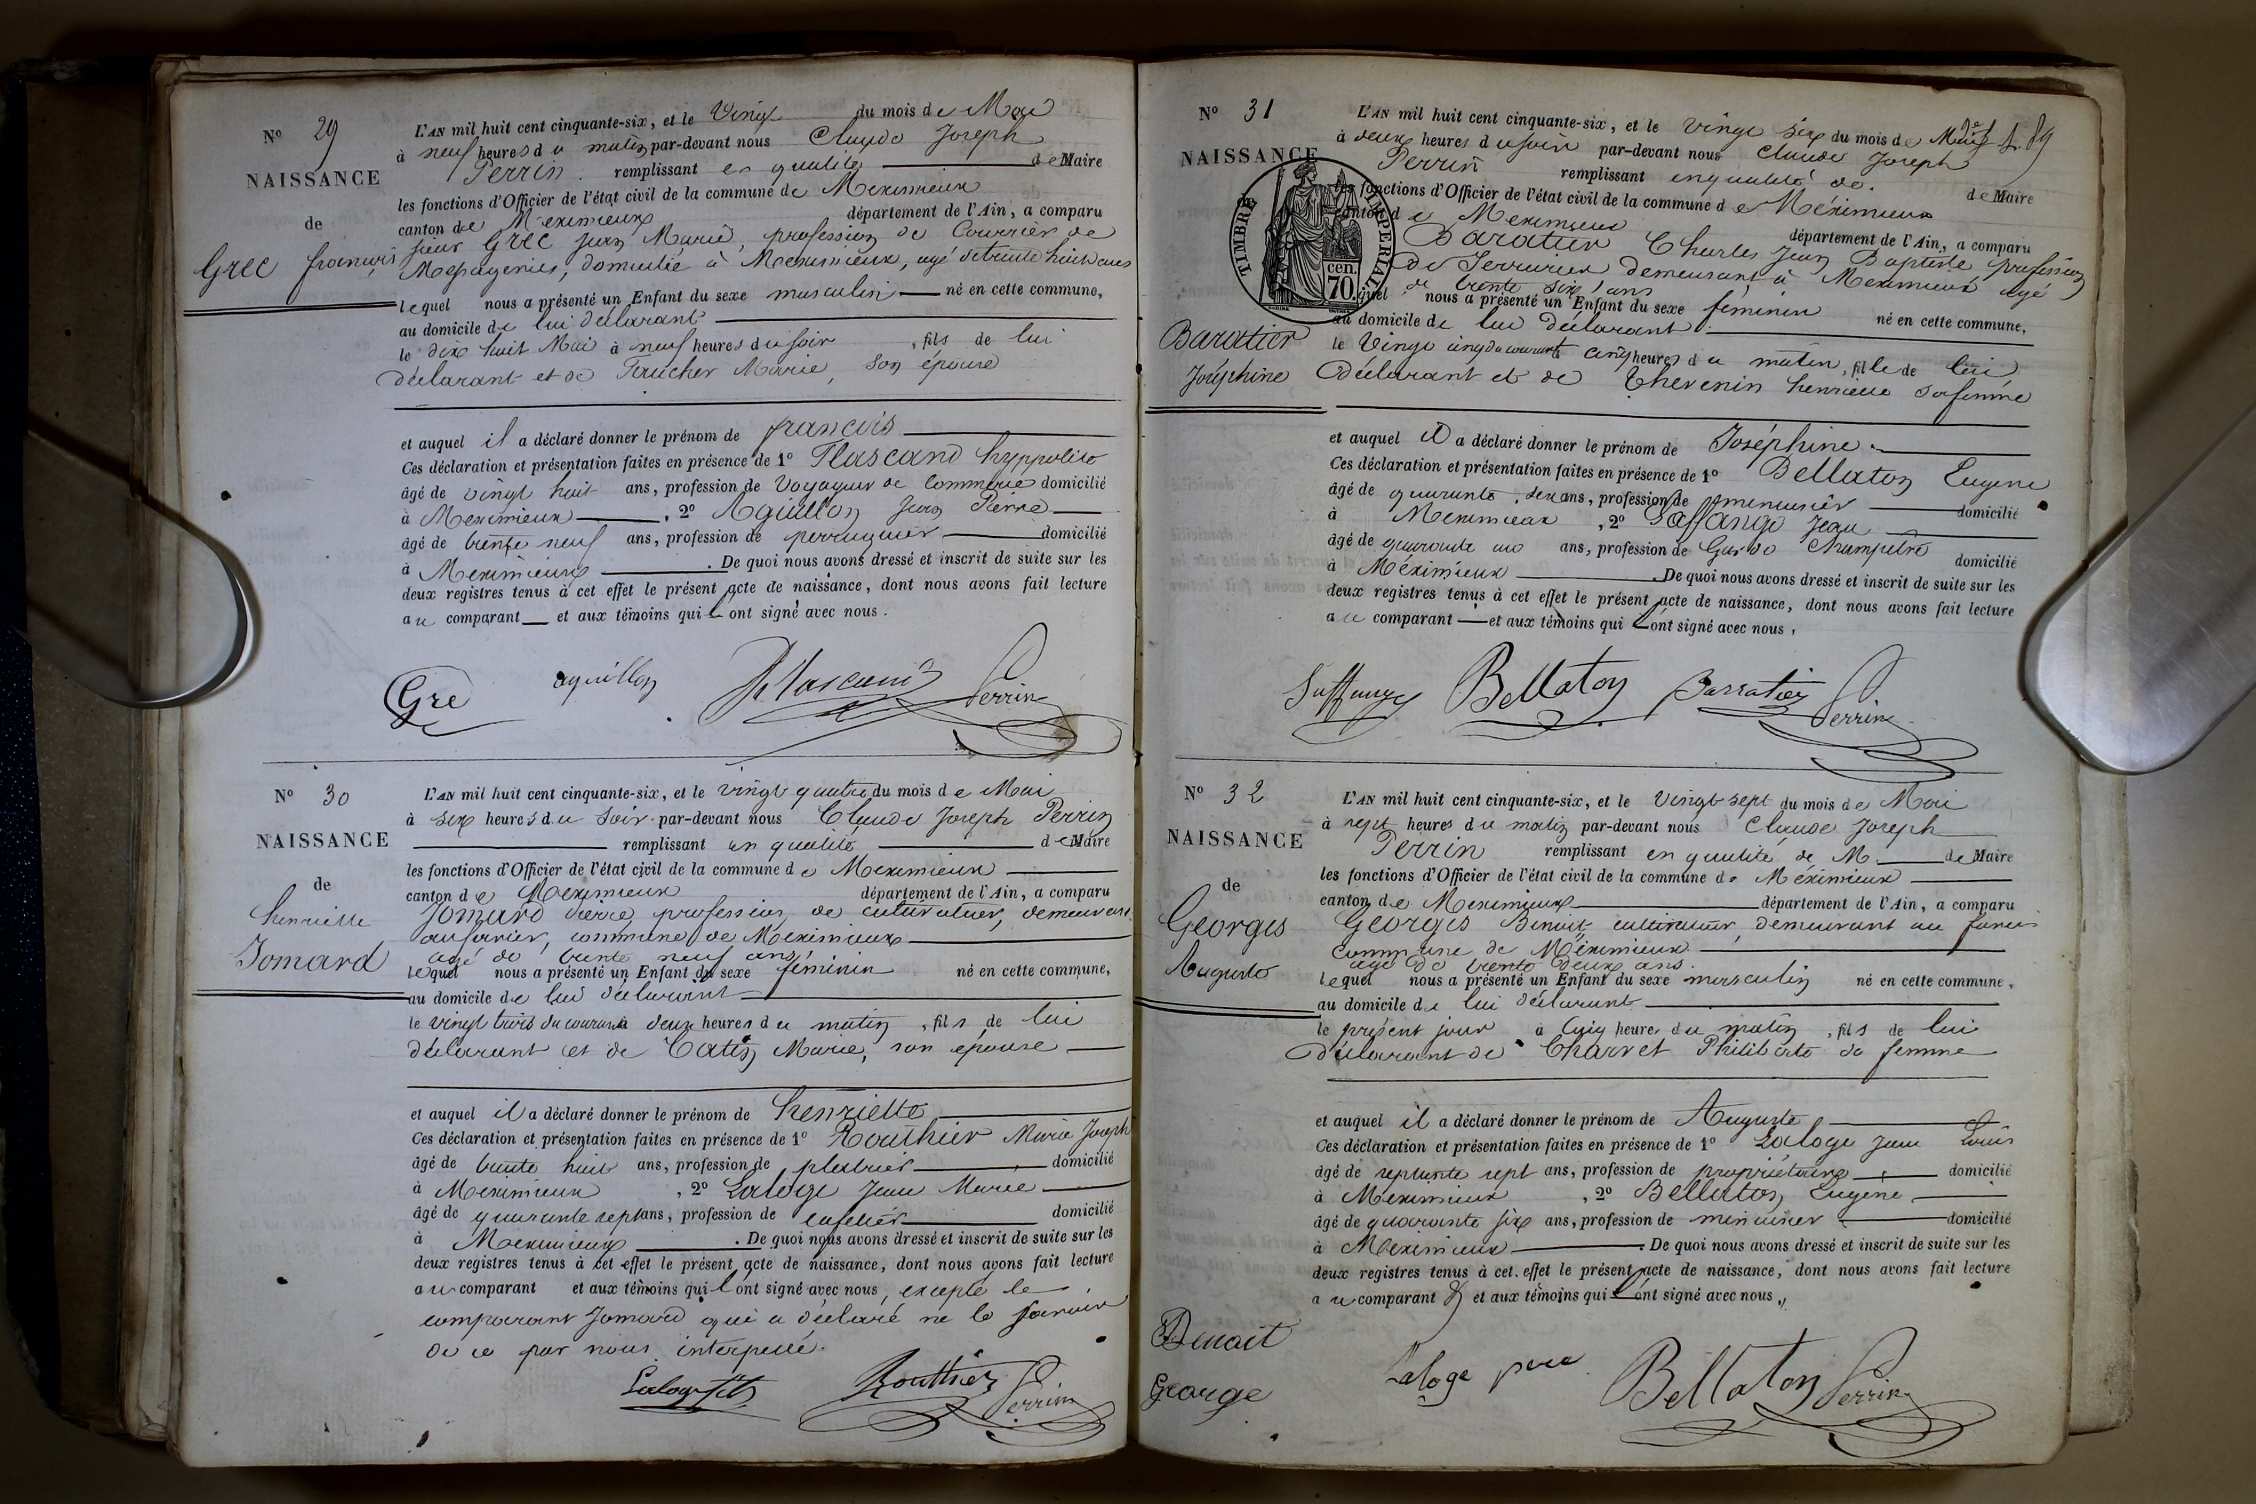 N° 29
NAISSANCE
de
Grec françois
L'AN mil huit cent cinquante-six, et le Vingt du mois de Mai
à neuf heures du matin par-devant nous Claude Joseph
Perrin remplissant en qualité de Maire
les fonctions d'Officier de l'état civil de la commune de Meximieux
canton de Meximieux département de l'Ain, a comparu
sieur Grec Jean Marie, profession de Courrier de
Messageries, domicilié à Meximieux, agé de trente huit ans
lequel nous a présenté un Enfant du sexe masculin né en cette commune,
au domicile de lui déclarant
le dix huit Mai à neuf heures du soir, fils de lui
déclarant et de Faucher Marie, son épouse
et auquel il a déclaré donner le prénom de françois
Ces déclaration et présentation faites en présence de 1° Flascand hyppolite
âgé de vingt huit ans, profession de voyageur de commerce domicilié
à Meximieux, 2° Aguillon Jean Pierre
âgé de trente neuf ans, profession de perruquier domicilié
à Meximieux. De quoi nous avons dressé et inscrit de suite sur les
deux registres tenus à cet effet le présent acte de naissance, dont nous avons fait lecture
au comparant et aux témoins qui l'ont signé avec nous.
Gre aguillon Perrin
N° 30
NAISSANCE
de
henriette
Jomard
L'AN mil huit cent cinquante-six, et le vingt quatre du mois de Mai
à six heures du soir par-devant nous Claude Joseph Perrin
remplissant en qualité de Maire
les fonctions d'Officier de l'état civil de la commune de Meximieux
canton de Meximieux département de l'Ain, a comparu
Jomard Pierre, profession de cultivateur, demeurant
commune de Meximieux
agé de trente neuf ans
lequel nous a présenté un Enfant du sexe féminin né en cette commune,
au domicile de lui déclarant
le vingt trois du courant à deux heures du matin, fils de lui
déclarant et de Catin Marie, son épouse
et auquel il a déclaré donner le prénom de henriette
Ces déclaration et présentation faites en présence de 1° Routhier Marie Joseph
âgé de trente huit ans, profession de plâtrier domicilié
à Meximieux, 2° Laloge Jean Marie
âgé de quarante sept ans, profession de cafetier domicilié
à Meximieux. De quoi nous avons dressé et inscrit de suite sur les
deux registres tenus à cet effet le présent acte de naissance, dont nous avons fait lecture
au comparant et aux témoins qui l'ont signé avec nous, excepté le
comparant Jomard qui a déclaré ne le savoir
de ce par nous interpellé.
Laloge fils Routhier Perrin
N° 31
NAISSANCE
TIMBRE IMPÉRIAL
70 cen.
Baratier
Joséphine
L'AN mil huit cent cinquante-six, et le vingt six du mois de Mai
à deux heures du soir par-devant nous Claude Joseph
Perrin remplissant en qualité de de Maire
les fonctions d'Officier de l'état civil de la commune de Méximieux
canton de Meximieux département de l'Ain, a comparu
Baratier Charles Jean Baptiste profession
de Serrurier demeurant à Meximieux agé
de trente six ans
lequel nous a présenté un Enfant du sexe féminin né en cette commune,
au domicile de lui déclarant
le Vingt cinq du courant à cinq heures du matin, fille de lui
déclarant et de Thevenin henriette sa femme
et auquel il a déclaré donner le prénom de Joséphine
Ces déclaration et présentation faites en présence de 1° Bellaton Eugene
âgé de quarante six ans, profession de menuisier domicilié
à Meximieux, 2° Saffange Jean
âgé de quarante un ans, profession de Garde Champetre domicilié
à Méximieux. De quoi nous avons dressé et inscrit de suite sur les
deux registres tenus à cet effet le présent acte de naissance, dont nous avons fait lecture
au comparant et aux témoins qui l'ont signé avec nous,
Saffange Bellaton Barratier Perrin
N° 32
NAISSANCE
de
Georges
Auguste
L'AN mil huit cent cinquante-six, et le vingt sept du mois de Mai
à sept heures du matin par-devant nous Claude Joseph
Perrin remplissant en qualité de M de Maire
les fonctions d'Officier de l'état civil de la commune de Méximieux
canton de Meximieux département de l'Ain, a comparu
Georges Benoit cultivateur, demeurant au
commune de Méximieux
agé de trente deux ans.
lequel nous a présenté un Enfant du sexe masculin né en cette commune,
au domicile de lui déclarant
le présent jour à cinq heures du matin, fils de lui
déclarant de Charvet Philiberte sa femme
et auquel il a déclaré donner le prénom de Auguste
Ces déclaration et présentation faites en présence de 1° Laloge Jean Louis
âgé de septante sept ans, profession de propriétaire domicilié
à Meximieux, 2° Bellaton Eugène
âgé de quarante six ans, profession de menuisier domicilié
à Meximieux. De quoi nous avons dressé et inscrit de suite sur les
deux registres tenus à cet effet le présent acte de naissance, dont nous avons fait lecture
au comparant et aux témoins qui l'ont signé avec nous,
Benoit
George
Laloge pere Bellaton Perrin